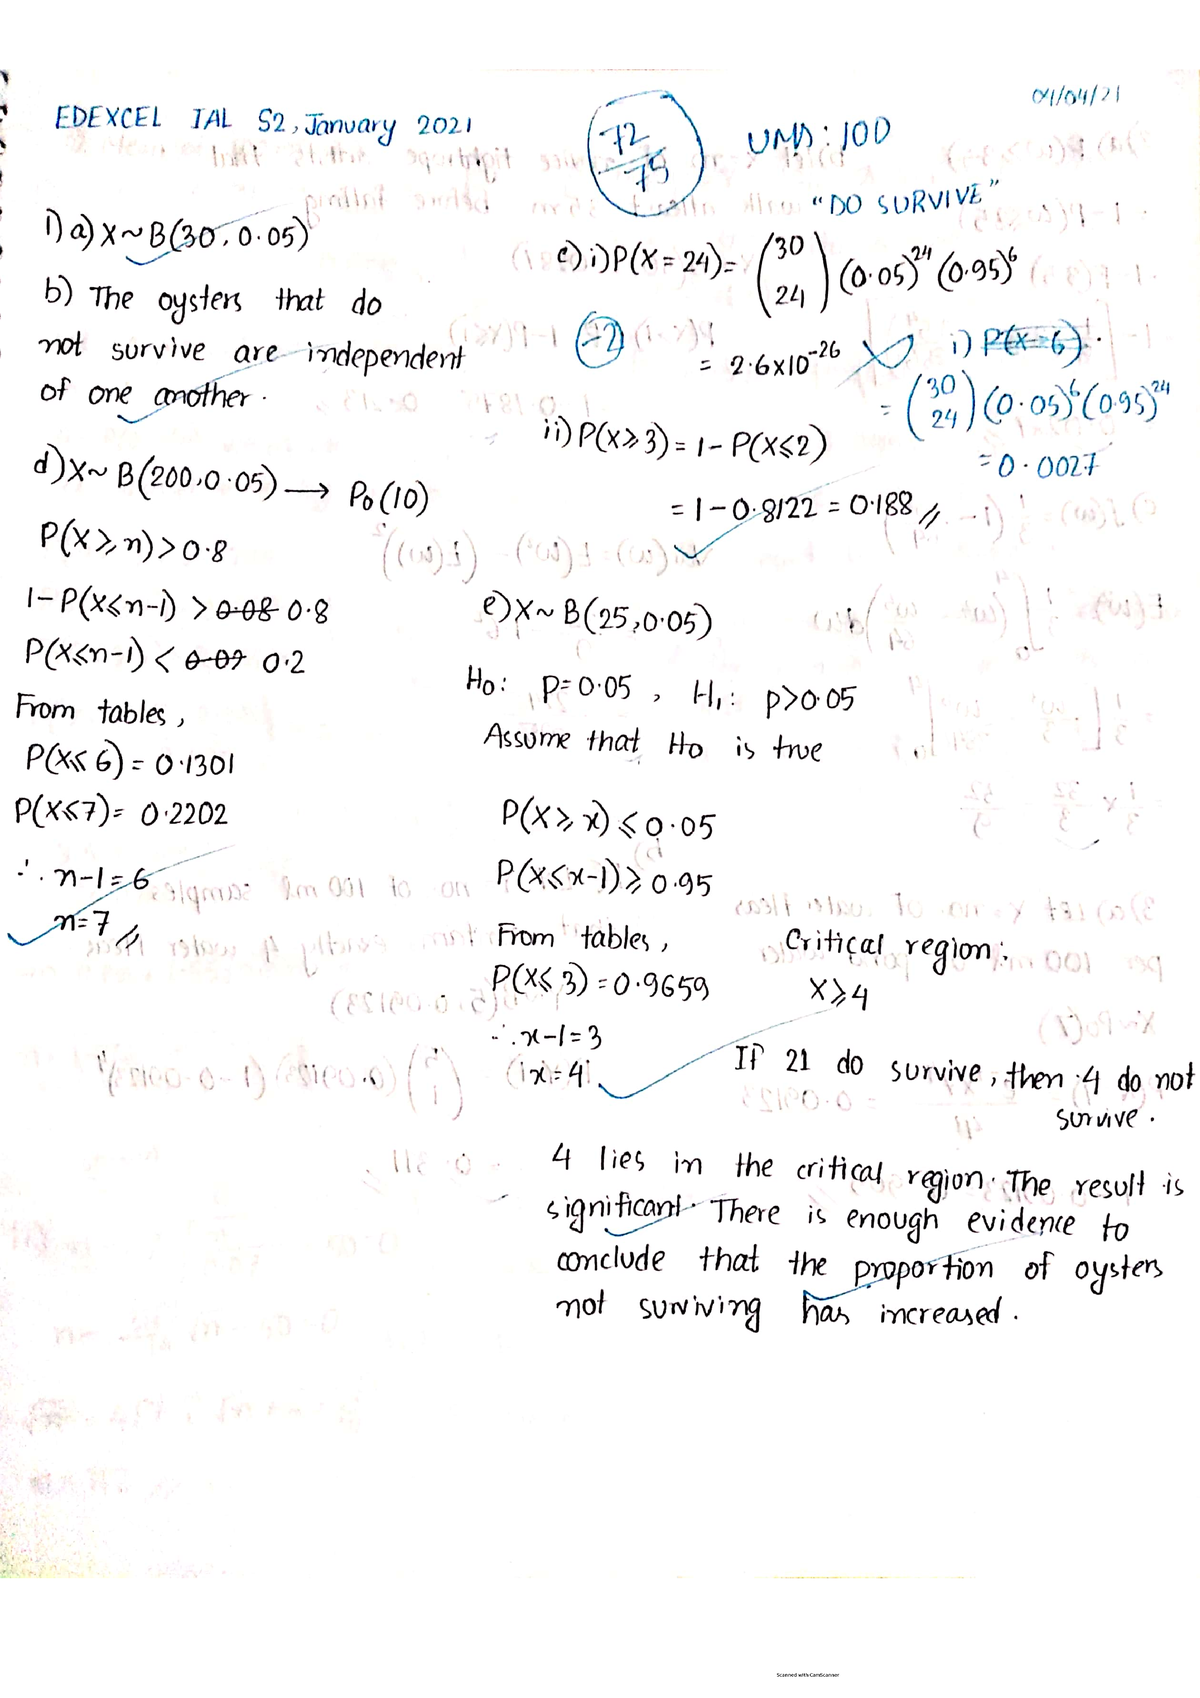 04/04/21
EDEXCEL IAL S2, January 2021
72/75
UMS: 100
"DO SURVIVE"
1) a) X ~ B(30, 0.05)
b) The oysters that do
not survive are independent
of one another.
c) i) P(X = 24) = (30 24) (0.05)^24 (0.95)^6
-2
= 2.6x10^-26
i) P(X=6)
= (30 24) (0.05)^6 (0.95)^24
= 0.0027
ii) P(X⩾3) = 1 - P(X⩽2)
= 1 - 0.8122 = 0.188 //
d) X ~ B(200, 0.05) → Po(10)
P(X⩾n) > 0.8
1 - P(X⩽n-1) > 0.08 0.8
P(X⩽n-1) < 0.09 0.2
From tables,
P(X⩽6) = 0.1301
P(X⩽7) = 0.2202
∴ n-1 = 6
n = 7 //
e) X ~ B(25, 0.05)
Ho: p = 0.05, H₁: p > 0.05
Assume that Ho is true
P(X⩾x) ⩽ 0.05
P(X⩽x-1) ⩾ 0.95
From tables,
P(X⩽3) = 0.9659
∴ x-1 = 3
x = 4
Critical region:
X⩾4
If 21 do survive, then 4 do not
survive.
4 lies in the critical region. The result is
significant. There is enough evidence to
conclude that the proportion of oysters
not surviving has increased.
Scanned with CamScanner